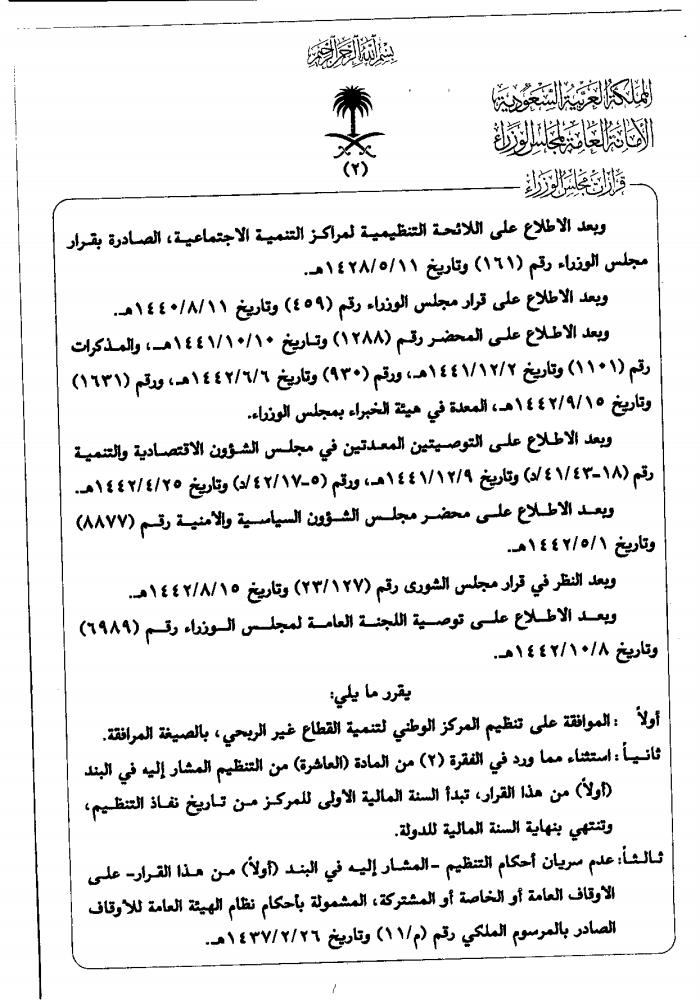 بسم الله الرحمن الرحيم
المملكة العربية السعودية
الأمانة العامة لمجلس الوزراء
(٢)
قرارات مجلس الوزراء
وبعد الاطلاع على اللائحة التنظيمية لمراكز التنمية الاجتماعية، الصادرة بقرار
مجلس الوزراء رقم (١٦١) وتاريخ ١٤٢٨/٥/١١هـ.
وبعد الاطلاع على قرار مجلس الوزراء رقم (٤٥٩) وتاريخ ١٤٤٠/٨/١١هـ.
وبعد الاطلاع على المحضر رقم (١٢٨٨) وتاريخ ١٤٤١/١٠/١٠هـ، والمذكرات
رقم (١١٠١) وتاريخ ١٤٤١/١٢/٢هـ، ورقم (٩٣٠) وتاريخ ١٤٤٢/٦/٦هـ، ورقم (١٦٣١)
وتاريخ ١٤٤٢/٩/١٥هـ، المعدة في هيئة الخبراء بمجلس الوزراء.
وبعد الاطلاع على التوصيتين المعدتين في مجلس الشؤون الاقتصادية والتنمية
رقم (١٨-٤١/٤٣/د) وتاريخ ١٤٤١/١٢/٩هـ، ورقم (٥-٤٢/١٧/د) وتاريخ ١٤٤٢/٤/٢٥هـ.
وبعد الاطلاع على محضر مجلس الشؤون السياسية والأمنية رقم (٨٨٧٧)
وتاريخ ١٤٤٢/٥/١هـ.
وبعد النظر في قرار مجلس الشورى رقم (٢٣/١٢٧) وتاريخ ١٤٤٢/٨/١٥هـ.
وبعد الاطلاع على توصية اللجنة العامة لمجلس الوزراء رقم (٦٩٨٩)
وتاريخ ١٤٤٢/١٠/٨هـ.
يقرر ما يلي:
أولاً : الموافقة على تنظيم المركز الوطني لتنمية القطاع غير الربحي، بالصيغة المرافقة.
ثانياً: استثناء مما ورد في الفقرة (٢) من المادة (العاشرة) من التنظيم المشار إليه في البند
(أولاً) من هذا القرار، تبدأ السنة المالية الأولى للمركز من تاريخ نفاذ التنظيم،
وتنتهي بنهاية السنة المالية للدولة.
ثالثاً: عدم سريان أحكام التنظيم -المشار إليه في البند (أولاً) من هذا القرار- على
الأوقاف العامة أو الخاصة أو المشتركة، المشمولة بأحكام نظام الهيئة العامة للأوقاف
الصادر بالمرسوم الملكي رقم (م/١١) وتاريخ ١٤٣٧/٢/٢٦هـ.